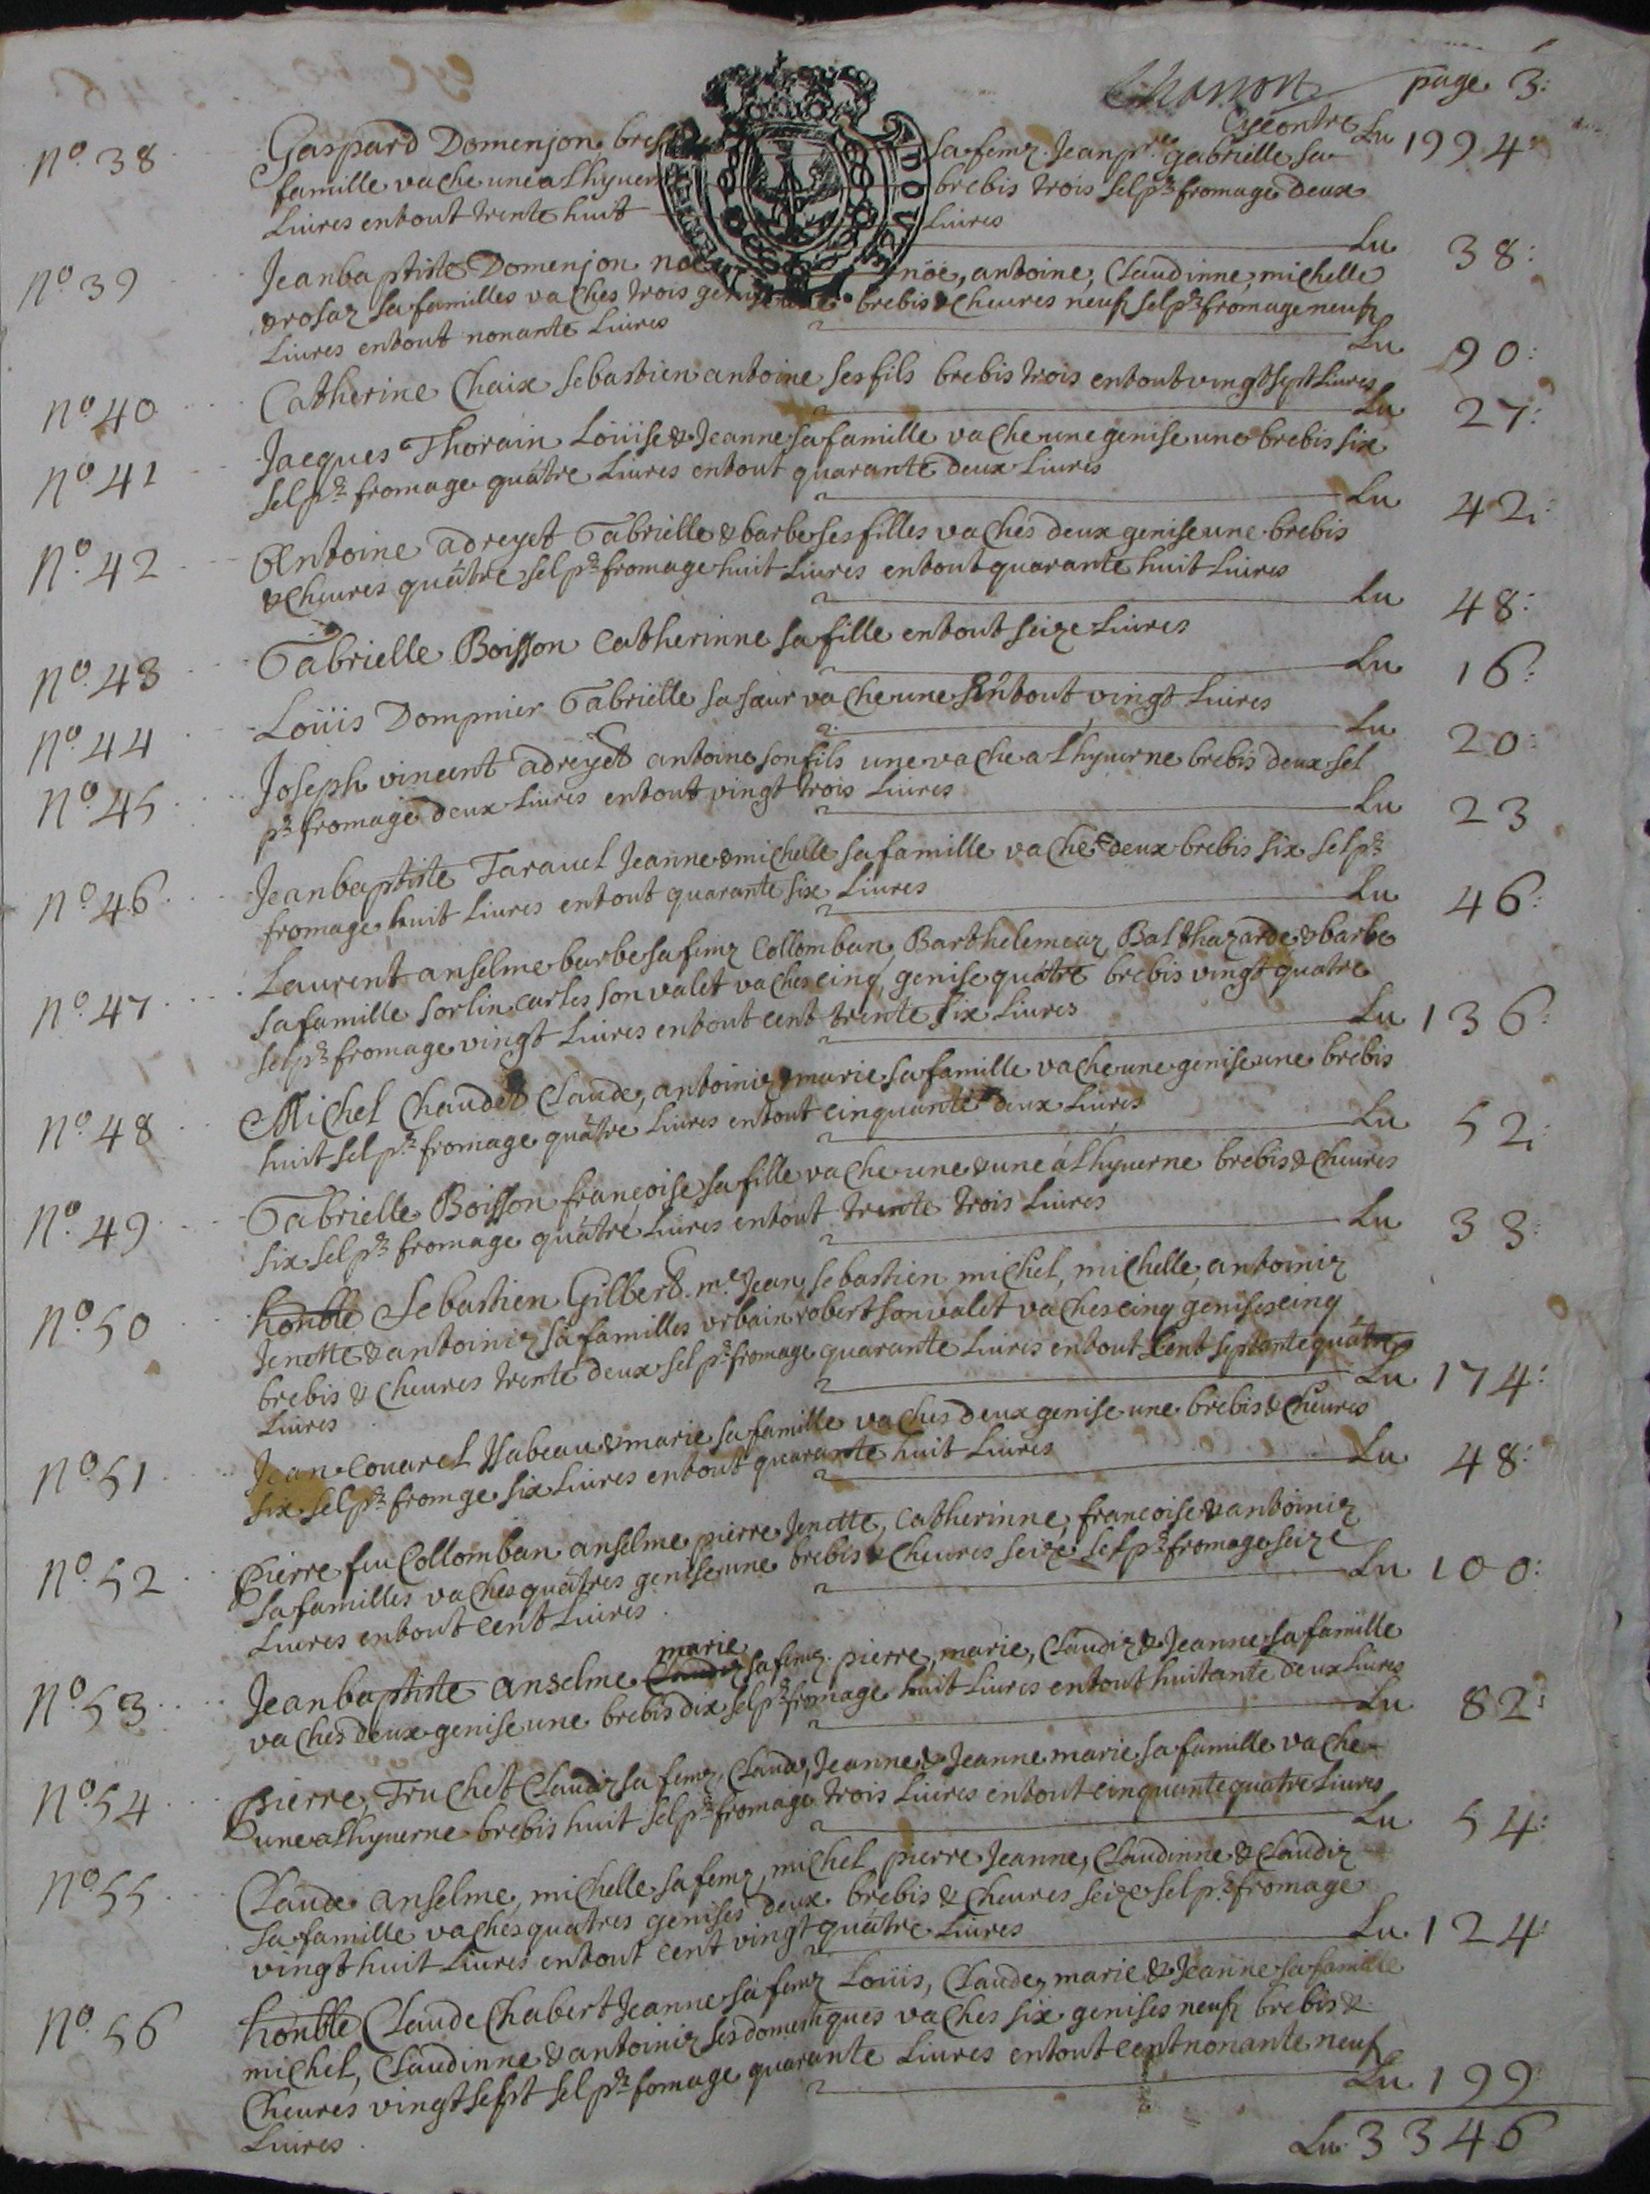 page 3:
Cy contre Lu 1994:
No. 38 Gaspard Domenjon sa femz Jean pre gabrielle sa
famille vache une a Lhyuer brebis trois sel pr fromage deux
Liures en tout trente huit Liures
Lu 38:
No 39 Jean baptiste Domenjon noë, antoine, Claudinne, michelle
& rosaz sa familles vaches trois genise une brebis & cheures neuf sel pr fromage neuf
Liures en tout nonante Liures
Lu 90:
No 40 Catherine Chaix sebastien antoine ses fils brebis trois en tout vingt sept Liures
Lu 27:
No 41 Jacques Thorain Loüise & Jeanne sa famille vache une genise une brebis six
sel pr fromage quâtre Liures en tout quarante deux Liures
Lu 42:
No. 42 Antoine adreyet Gabrielle & barbe ses filles vaches deux genise une brebis
& cheures quâtre sel pr fromage huit Liures en tout quarante huit Liures
Lu 48:
No. 43 Gabrielle Boisson Catherinne sa fille en tout seize Liures
Lu 16:
No. 44 Loüis Dompnier Gabrielle sa sœur vache une En tout vingt Liures
Lu 20:
No. 45 Joseph vincent adreyet antoine son fils une vache a Lhyuerne brebis deux sel
pr fromage deux Liures en tout vingt trois Liures
Lu 23
No. 46 Jean baptiste Tarauel Jeanne & michelle sa famille vaches deux brebis six sel pr
fromage huit Liures en tout quarante six Liures
Lu 46:
No. 47 Laurent anselme barbe sa femz Collomban, Barthelemiaz Balthazarde & barbe
sa famille sorlin carles son valet vaches cinq, genise quâtre brebis vingt quatre
sel pr fromage vingt Liures en tout cent trente six Liures
Lu 136:
No. 48 Michel Chaudet Claude, antoiniz & marie sa famille vache une genise une brebis
huit sel pr fromage quâtre Liures en tout cinquante deux Liures
Lu 52:
No. 49 Gabrielle Boisson françoise sa fille vache une & une á Lhyuerne brebis & cheures
six sel pr fromage quâtre Liures en tout trente trois Liures
Lu 33:
No. 50 honble Sebastien Gilbert me Jean, sebastien michel, michelle, antoiniz
Jenette & antoiniz sa familles vrbain robert son valet vaches cinq genises cinq
brebis & cheures trente deux sel pr fromage quarante Liures en tout Cent septante quâtre
Liures
Lu 174:
No. 51 Jean Couarel Isabeau & marie sa famille vaches deux genise une brebis & cheures
six sel pr fromge six Liures en tout quarante huit Liures
Lu 48:
No. 52 Pierre feu Collomban anselme pierre Jenette, Catherinne, francoise & antoiniz
sa familles vaches quâtres genise une brebis & cheures seize sel pr fromage seize
Liures en tout cent Liures
Lu 100:
marie
No. 53 Jean baptiste anselme Claudiz sa femz pierre, marie, Claudiz & Jeanne sa famille
vaches deux genise une brebis dix sel pr fromage huit Liures en tout huitante deux Liures
Lu 82:
No. 54 Pierre, Truchet Claudiz sa femz, Claude, Jeanne & Jeanne marie sa famille vache
une a Lhyuerne brebis huit sel pr fromage trois Liures en tout cinquante quatre Liures
Lu 54:
No. 55 Claude anselme, michelle sa femz, michel, pierre Jeanne, Claudinne & Claudiz
sa famille vaches quâtres genises deux brebis & cheures seize sel pr fromage
vingt huit Liures en tout cent vingt quâtre Liures
Lu 124:
No. 56 honble Claude Chabert Jeanne sa femz Loüis, Claude, marie & Jeanne sa famille
michel, Claudinne & antoiniz ses domestiques vaches six genises neuf brebis &
Cheures vingt sept sel pr fomage quarante Liures en tout cent nonante neuf
Liures
Lu 199:
Lu 3346